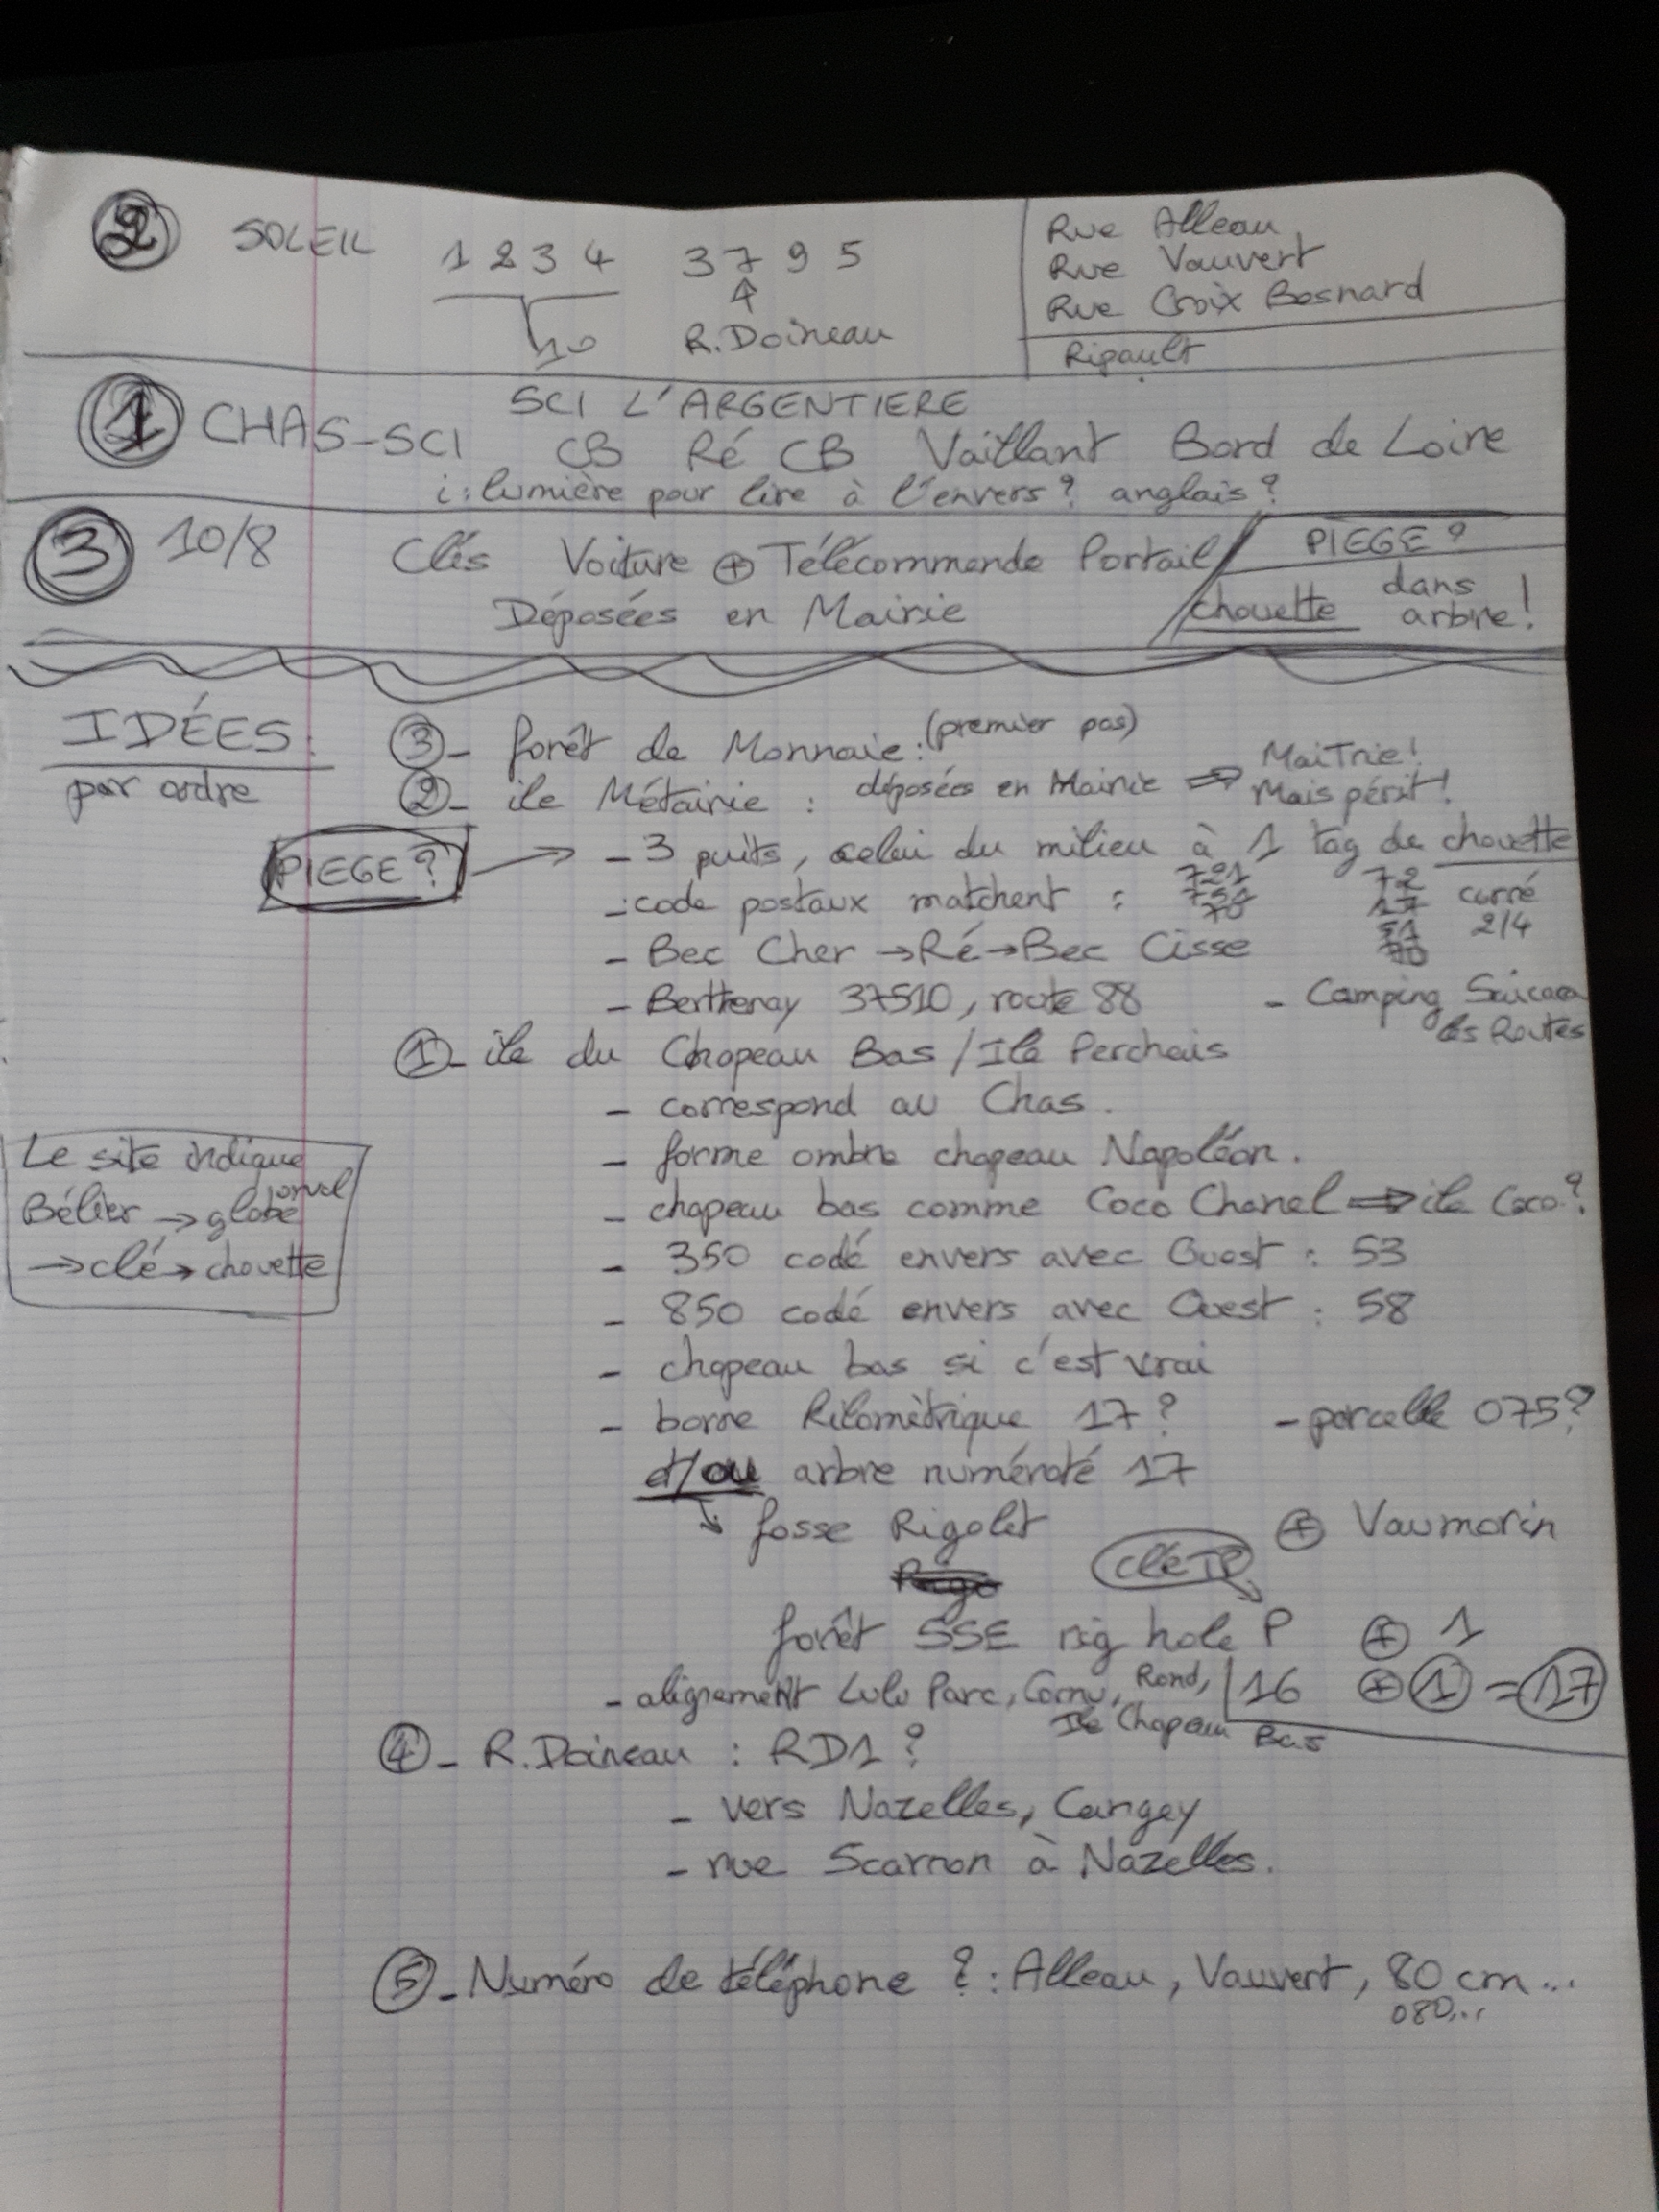 2 SOLEIL 1 2 3 4 3 7 9 5
10
R. Doineau
Rue Alleau
Rue Vauvert
Rue Croix Besnard
Ripault
1 CHAS-SCI SCI L'ARGENTIERE
CB Ré CB Vaillant Bord de Loire
i : lumière pour lire à l'envers ? anglais ?
3 10/8 Clés Voiture + Télécommande Portail
Déposées en Mairie
PIEGE ?
chouette dans arbre !
IDÉES :
par ordre
3 - forêt de Monnaie : (premier pas)
2 - ile Métairie : déposées en Mairie => MaiTrie !
Mais périt !
PIEGE ? → - 3 puits, celui du milieu à 1 tag de chouette
- code postaux matchent : 721 72 carré
17 2/4
51
- Bec Cher → Ré → Bec Cisse
- Berthenay 37510, route 88 - Camping
les Routes
1 - ile du Chapeau Bas / Ile Perchais
- correspond au Chas.
- forme ombre chapeau Napoléon.
- chapeau bas comme Coco Chanel => ile Coco ?
- 350 codé envers avec Ouest : 53
- 850 codé envers avec Ouest : 58
- chapeau bas si c'est vrai
- borne kilométrique 17 ? - parcelle 075 ?
et/ou arbre numéroté 17
↳ fosse Rigolet + Vaumorin
clé
forêt SSE rig hole P + 1
- alignement Lulu Parc, Cornu, Rond, 16 + 1 = 17
Ile Chapeau Bas
Le site indique
Bélier → globe
→ clé → chouette
4 - R. Doineau : RD1 ?
- vers Nazelles, Cangey
- rue Scarron à Nazelles.
5 - Numéro de téléphone ? : Alleau, Vauvert, 80 cm ...
080...